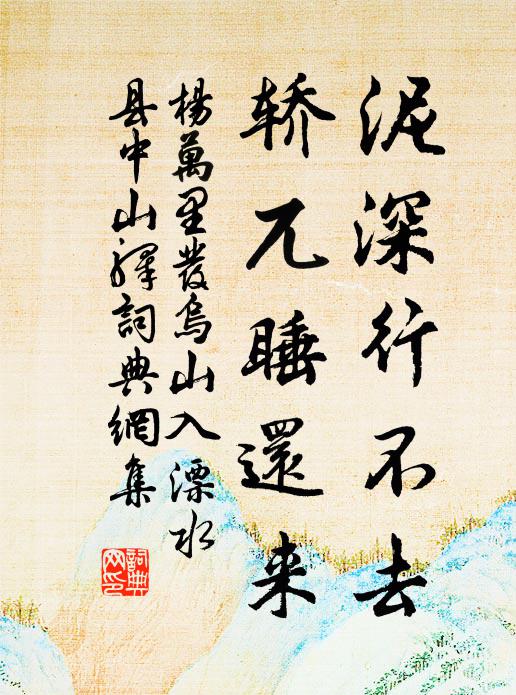 泥深行不去
轿兀睡還来
楊萬里發烏山入溧水
县中山驛詞典網集
詞典